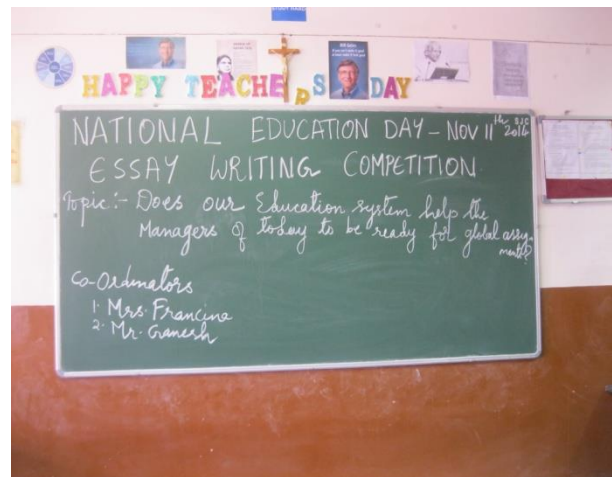 HAPPY TEACHERS DAY
NATIONAL EDUCATION DAY - NOV 11th 2014
SJC
ESSAY WRITING COMPETITION
Topic:- Does our Education system help the
Managers of today to be ready for global assign-
ments?
Co-Ordinators
1. Mrs. Francina
2. Mr. Ganesh